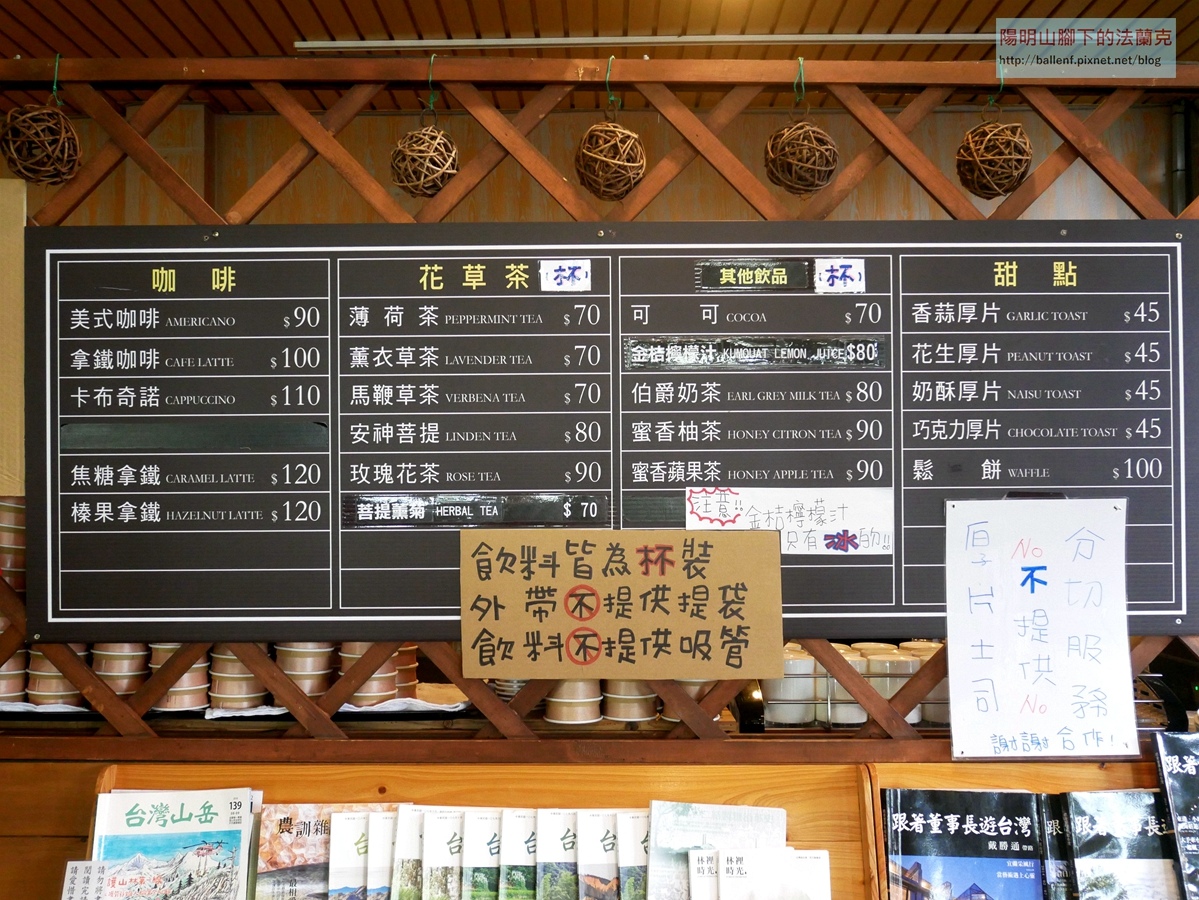 陽明山腳下的法蘭克
http://ballenf.pixnet.net/blog
咖啡
美式咖啡 AMERICANO $90
拿鐵咖啡 CAFE LATTE $100
卡布奇諾 CAPPUCCINO $110
焦糖拿鐵 CARAMEL LATTE $120
榛果拿鐵 HAZELNUT LATTE $120
花草茶 (杯)
薄荷茶 PEPPERMINT TEA $70
薰衣草茶 LAVENDER TEA $70
馬鞭草茶 VERBENA TEA $70
安神菩提 LINDEN TEA $80
玫瑰花茶 ROSE TEA $90
菩提薰菊 HERBAL TEA $70
其他飲品 (杯)
可可 COCOA $70
金桔檸檬汁 KUMQUAT LEMON JUICE $80
伯爵奶茶 EARL GREY MILK TEA $80
蜜香柚茶 HONEY CITRON TEA $90
蜜香蘋果茶 HONEY APPLE TEA $90
注意!! 金桔檸檬汁
只有冰的!!
甜點
香蒜厚片 GARLIC TOAST $45
花生厚片 PEANUT TOAST $45
奶酥厚片 NAISU TOAST $45
巧克力厚片 CHOCOLATE TOAST $45
鬆餅 WAFFLE $100
飲料皆為杯裝
外帶不提供提袋
飲料不提供吸管
厚片土司
No不提供No
分切服務
謝謝合作!
台灣山岳
139
農訓雜
台
台
台
台
台
台
林裡時光,
林裡時光,
跟著董事長遊台灣
戴勝通 帶路
跟
跟著董事長
跟著